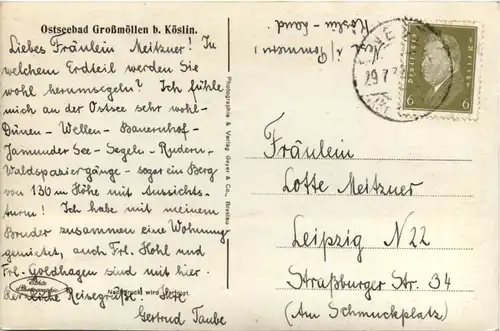 Ostseebad Großmöllen b. Köslin.
Liebes Fräulein Meitzner! In
welchem Erdteil werden Sie
wohl herumsegeln? Ich fühle
mich an der Ostsee sehr wohl-
Dünen - Wellen - Bauernhof-
Jamunder See - Segeln - Rudern-
Waldspaziergänge - sogar ein Berg
von 130 m Höhe mit Aussichts-
turm! Ich habe mit meinem
Bruder zusammen eine Wohnung
gemietet, auch Frl. Hohl und
Frl. Goldhagen sind mit hier.
Reisegrüße. Ihre
Gertrud Taube
Nachdruck wird verfolgt.
Photographie & Verlag Geyer & Co., Breslau
i/Pommern!
Köslin - Land.
29.7
Deutsches Reich
6 6
Fräulein
Lotte Meitzner
Leipzig N 22
Straßburger Str. 34
(Am Schmuckplatz)